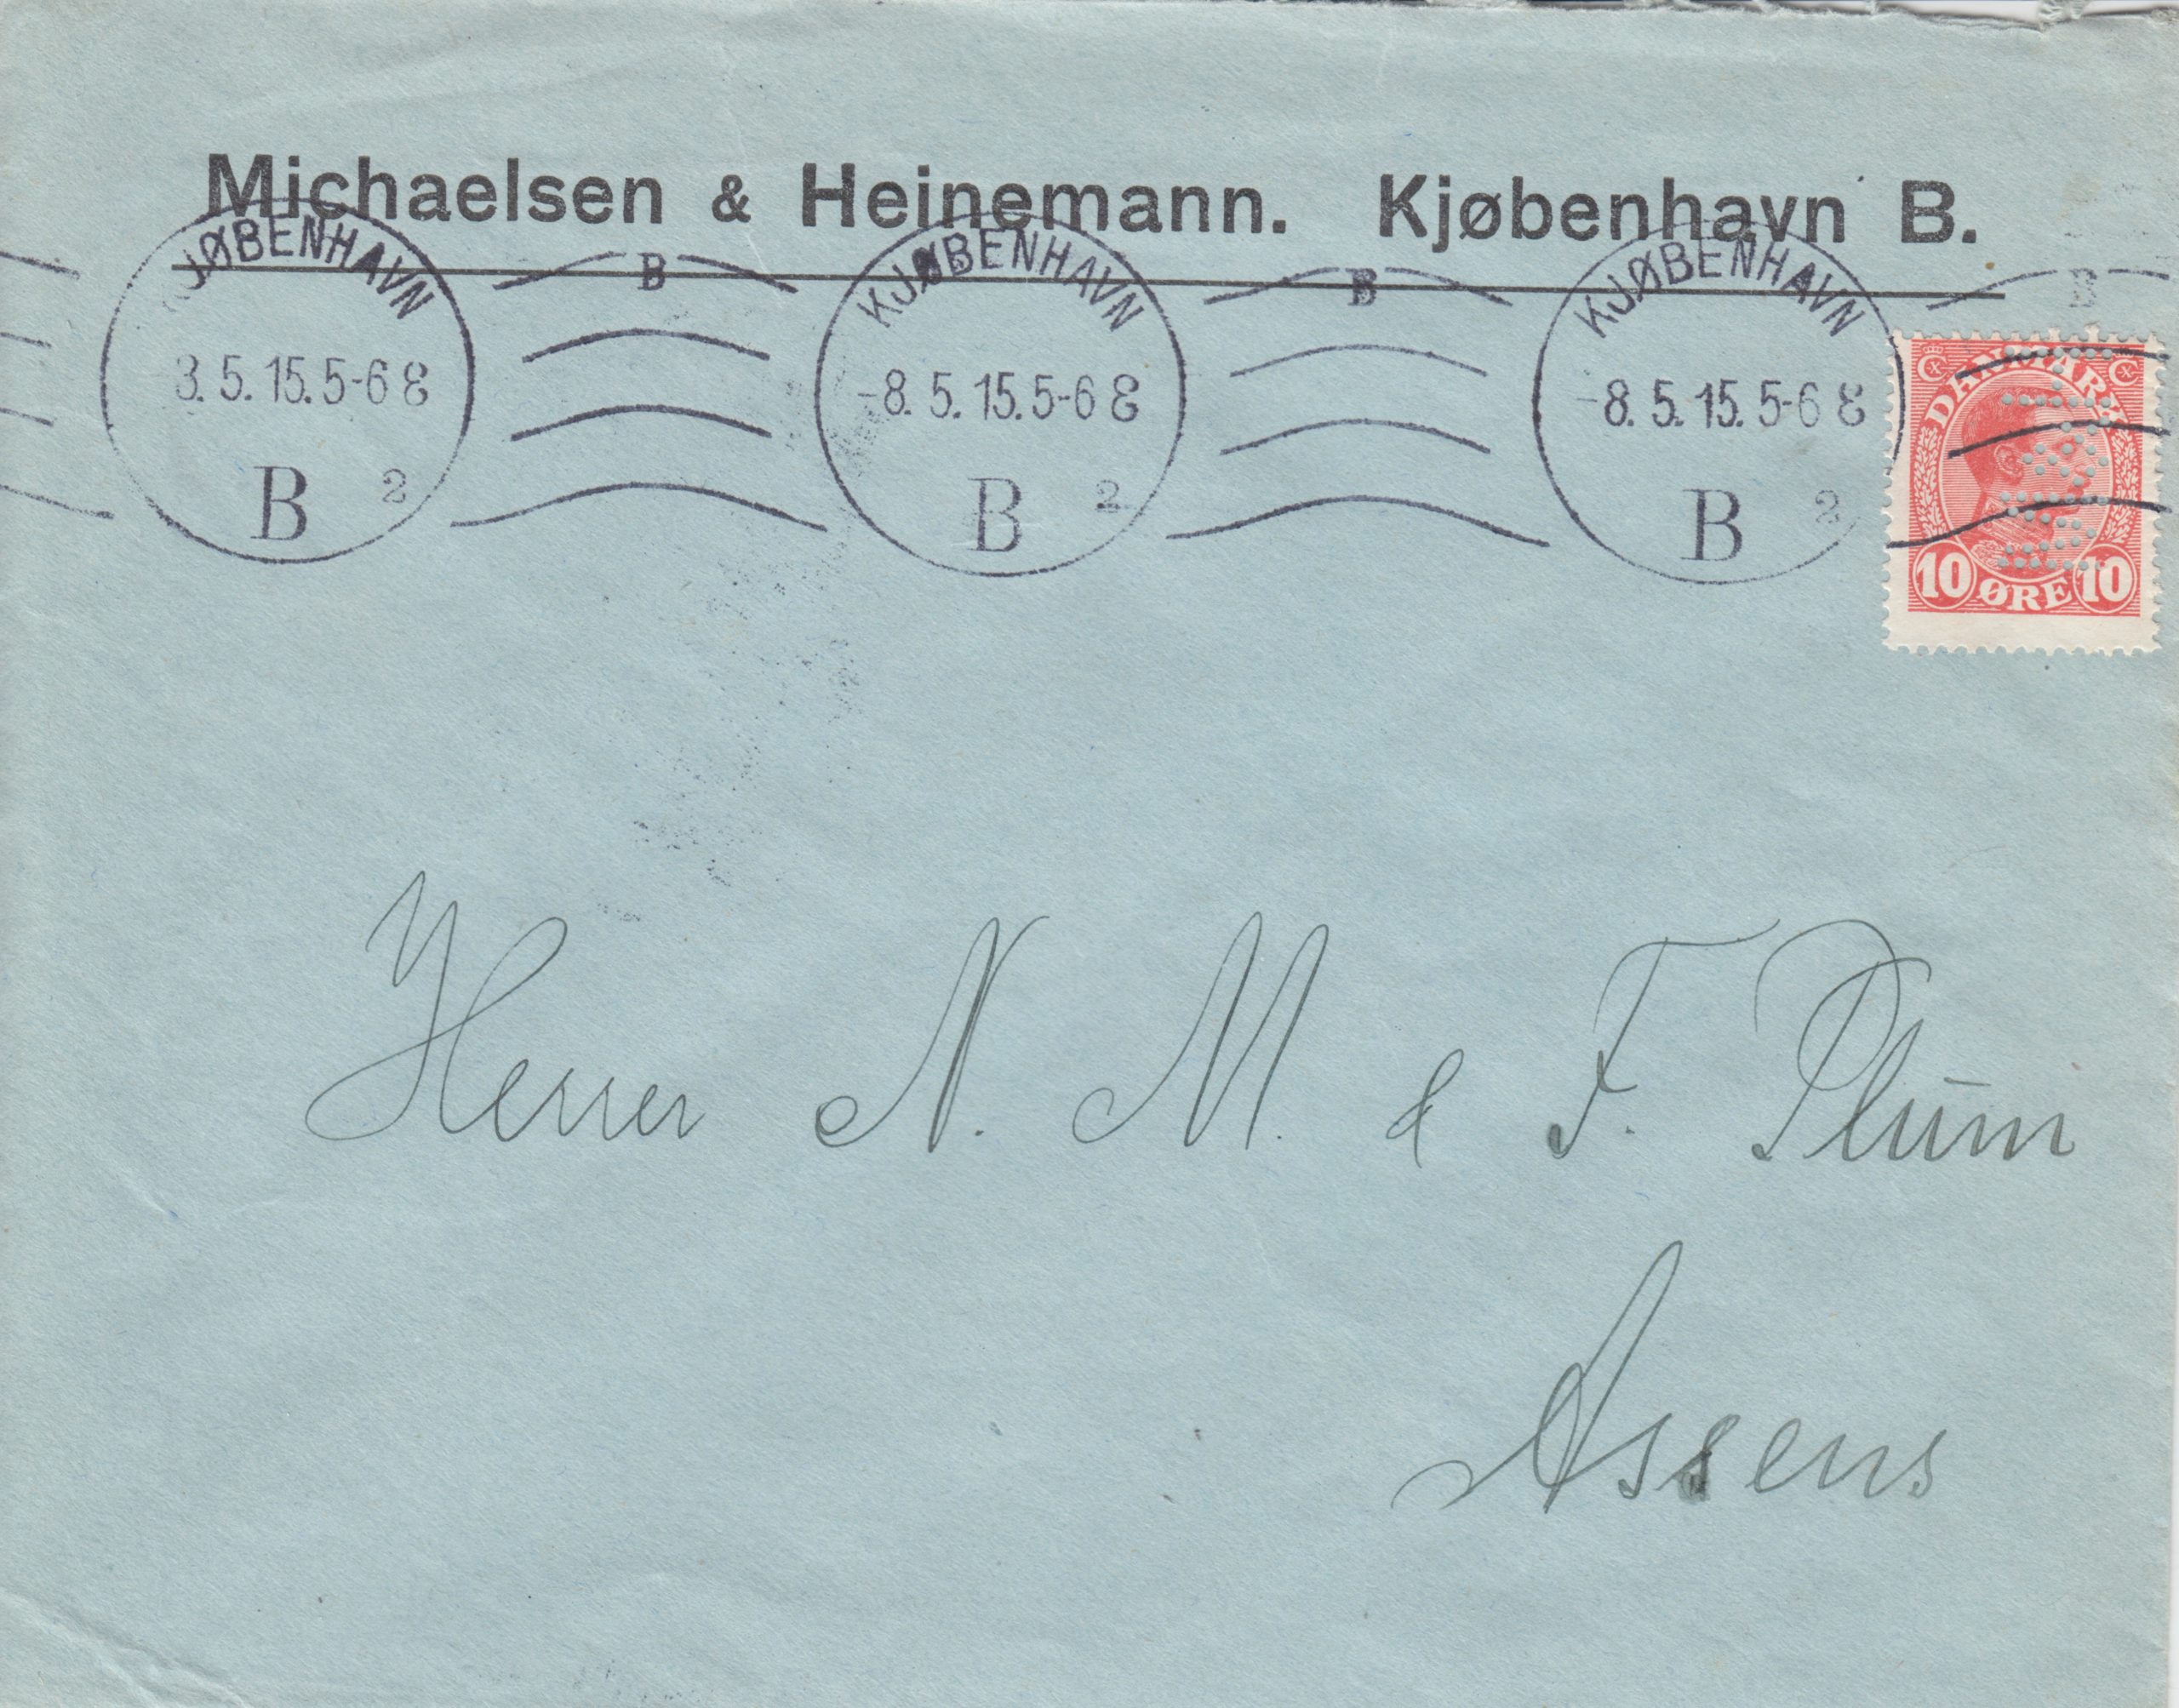 Michaelsen & Heinemann. Kjøbenhavn B.
B B B
JØBENHAVN KJØBENHAVN KJØBENHAVN
8. 5. 15. 5-6 E -8. 5. 15. 5-6 E -8. 5. 15. 5-6 E
B 2 B 2 B 2
DANMARK
10 ØRE 10
Herrer N. M. & F. Plum
Assens